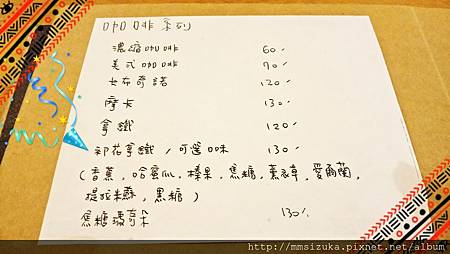 咖啡系列
濃縮咖啡 60.-
美式咖啡 70.-
卡布奇諾 120.-
摩卡 130.-
拿鐵 120.-
印花拿鐵/可選口味 130.-
(香蕉,哈蜜瓜,榛果,焦糖,薰衣草,愛爾蘭,
提拉米蘇,黑糖)
焦糖瑪奇朵 130.-
http://mmsizuka.pixnet.net/album